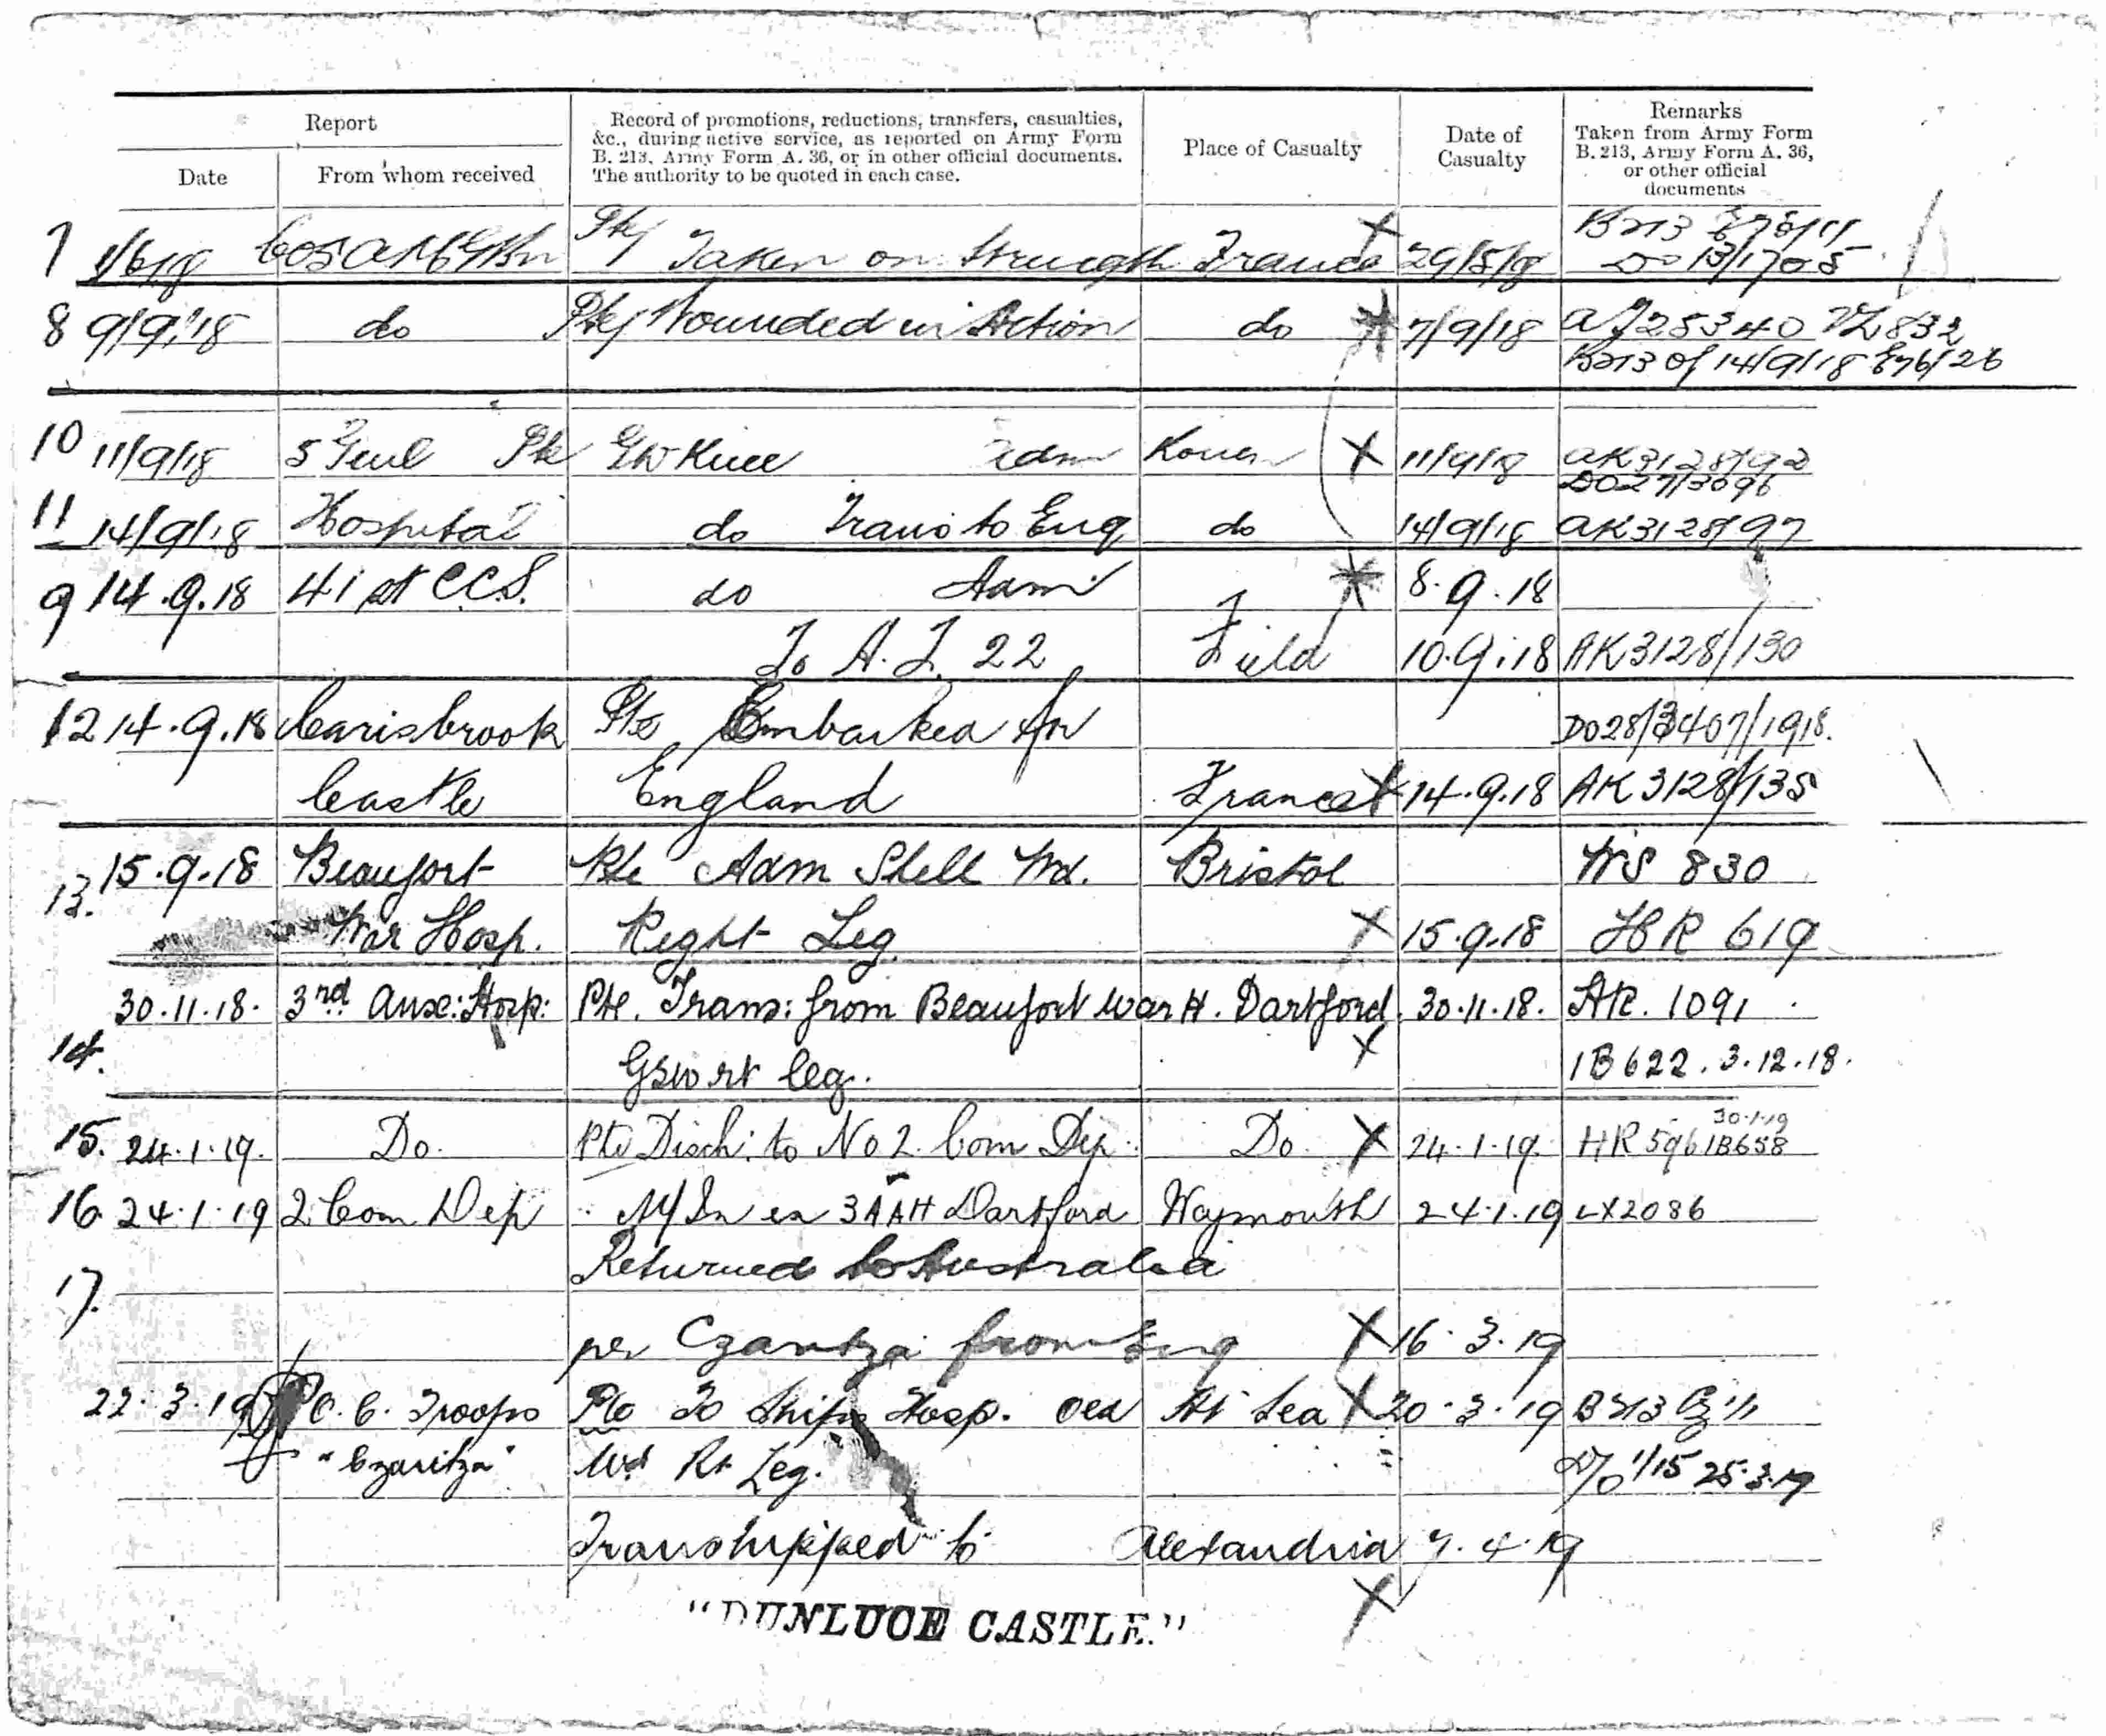 Report
Date
From whom received
Record of promotions, reductions, transfers, casualties,
&c., during active service, as reported on Army Form
B. 213, Army Form A. 36, or in other official documents.
The authority to be quoted in each case.
Place of Casualty
Date of
Casualty
Remarks
Taken from Army Form
B. 213, Army Form A. 36,
or other official
documents
7 1/6/18 Pte Taken on Strength France 29/5/18 B213
Do 13/1705
8 9/9/18 do Pte Wounded in Action do 7/9/18 25340 832
B213 of 14/9/18 E76/26
10 11/9/18 5 Genl Pte Knee adm Rouen 11/9/18 AK3128/92
DO27/3096
11 14/9/18 Hospital do Trans to Eng do 14/9/18 AK3128/97
9 14.9.18 41st CCS. do Adm 8.9.18
To A.T. 22 Field 10.9.18 AK3128/130
12 14.9.18 Carisbrook Pte Embarked for DO28/3407/1918.
Castle England France 14.9.18 AK3128/135
13. 15.9.18 Beaufort Pte Adm Shell Wd. Bristol WS 830
War Hosp. Right Leg. 15.9.18 HR 619
30.11.18. 3rd Aux: Hosp: Pte. Trans: from Beaufort War H. Dartford. 30.11.18. AR. 1091
14. GSW rt leg. 1B622. 3.12.18.
30.1.19
15. 24.1.19. Do. Pte Disch: to No 2. Com Dep: Do. 24.1.19. HR 596 1B658
16 24.1.19 2 Com Dep M/In ex 3AAH Dartford Weymouth 24.1.19 LX2086
17. Returned to Australia
per Czaritza from Eng 16.3.19
22.3.19 O.C. Troops Pte To Ships Hosp. old At Sea 20.3.19 B213
"Czaritza" Wd Rt Leg. D/O 1/15 25.3.19
Transhipped to Alexandria 7.4.19
"DUNLUCE CASTLE."